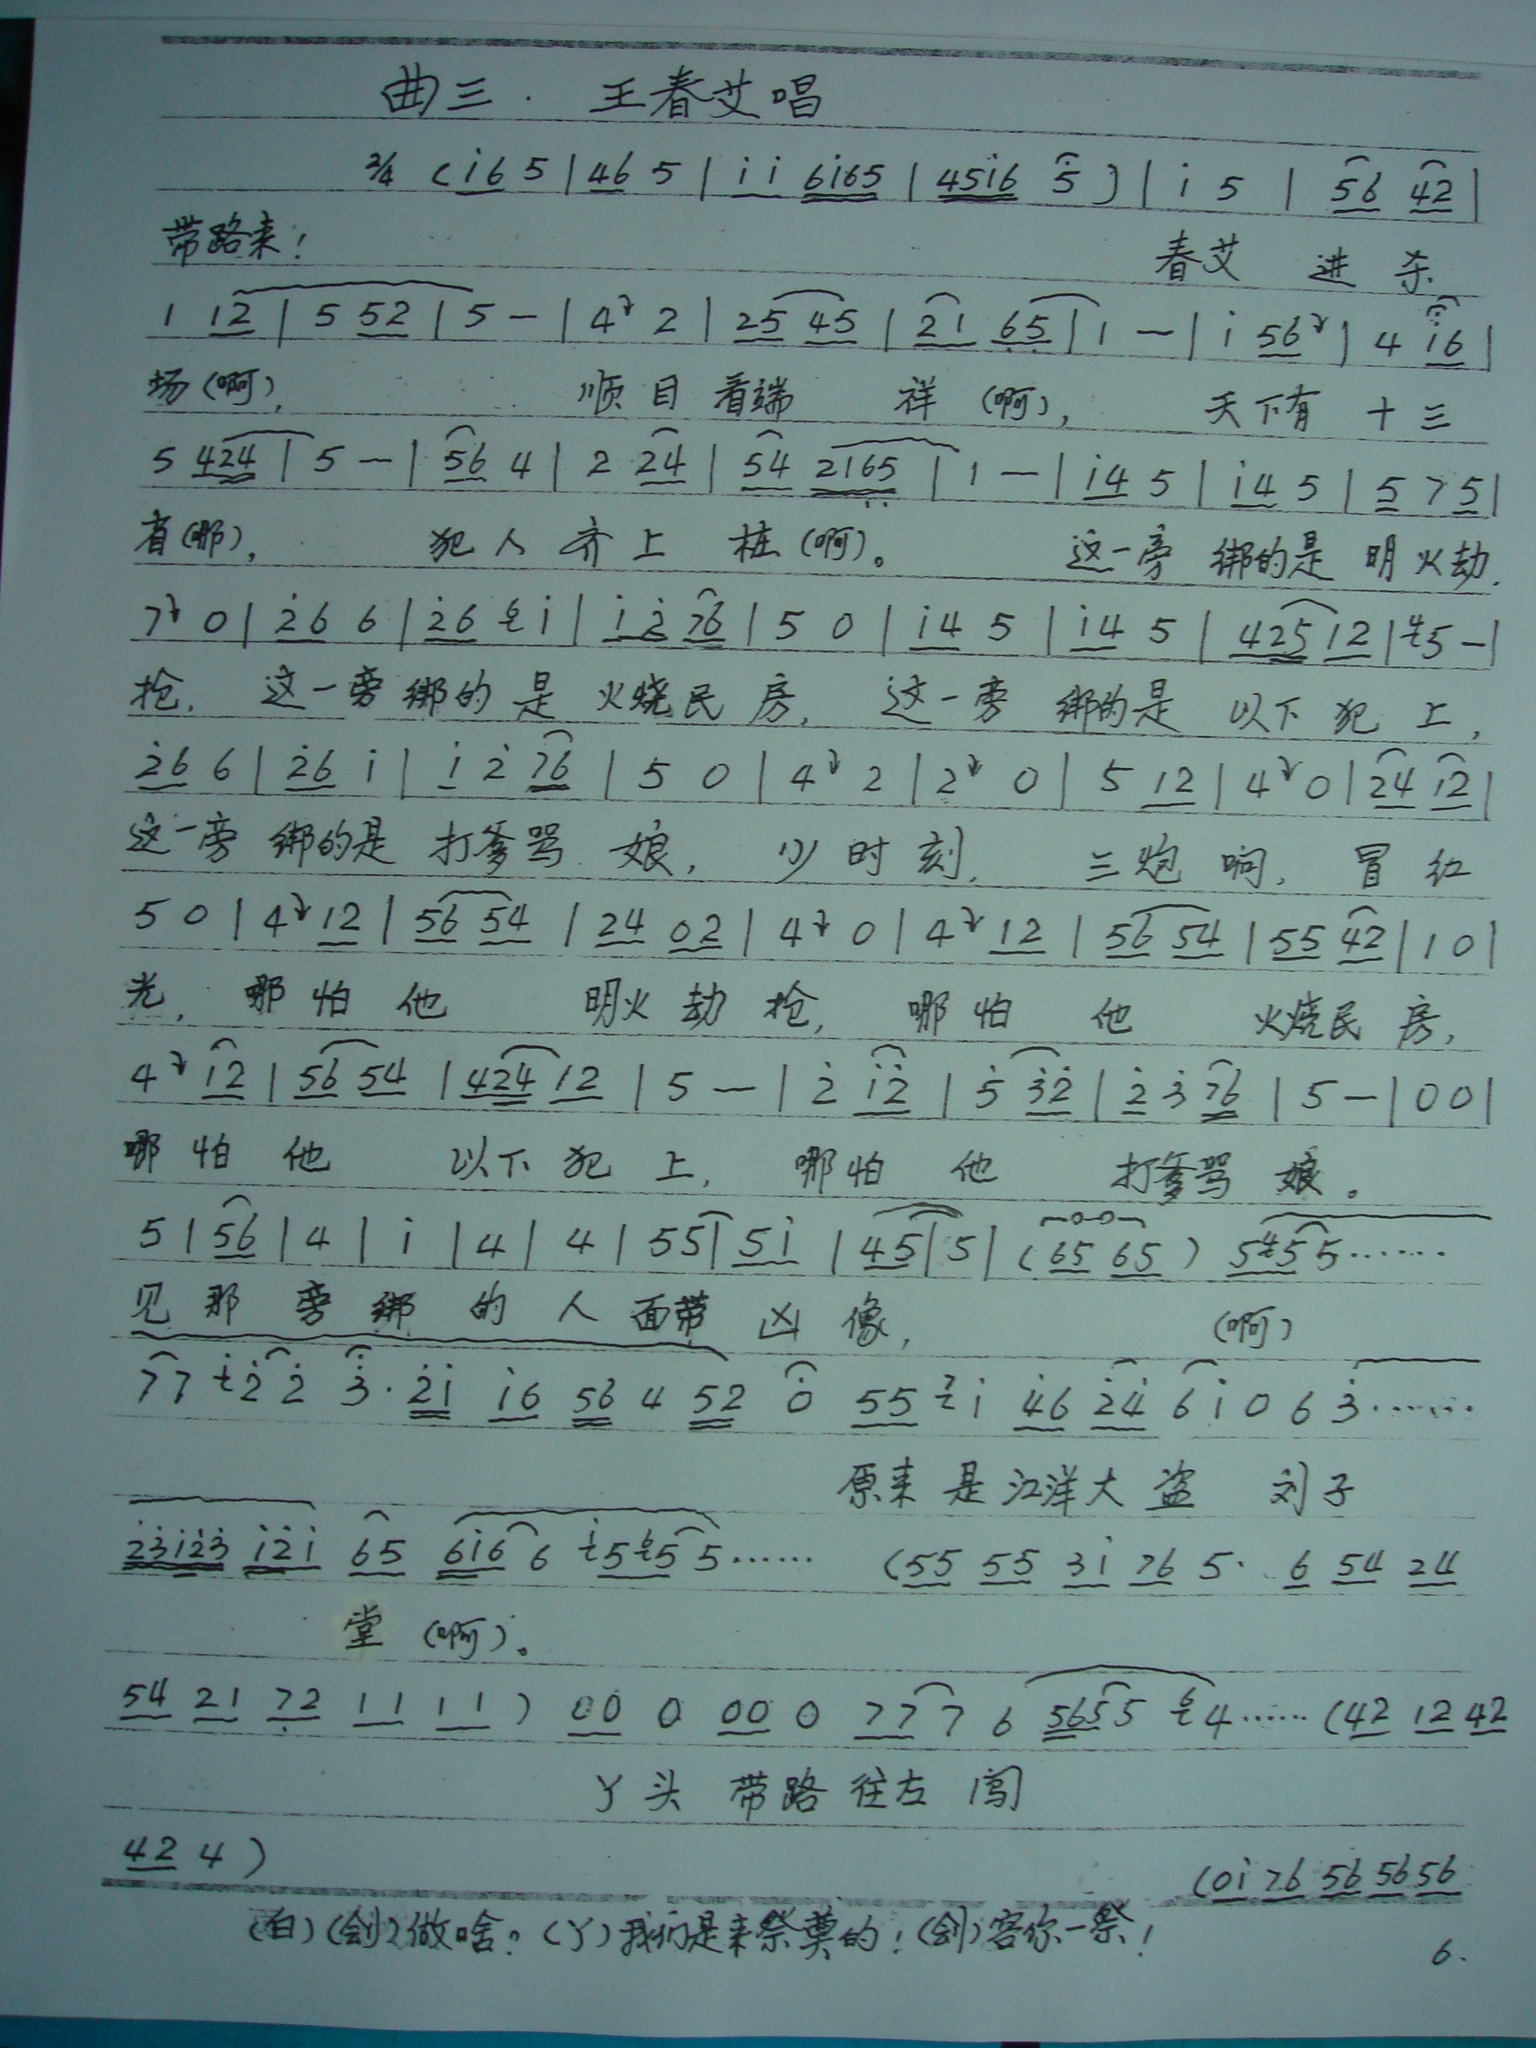 曲三． 王春艾唱
2/4 (i6 5 | 46 5 | i i 6i65 | 45i6 5 ) | i 5 | 56 42 |
带路来！ 春艾 进 杀
1 12 | 5 52 | 5 — | 4 2 | 25 45 | 21 65 | 1 — | i 56 | 4 i6 |
场(啊)， 顺目看端 祥 (啊)， 天下有 十三
5 424 | 5 — | 56 4 | 2 24 | 54 2165 | 1 — | i4 5 | i4 5 | 5 7 5 |
省(哪)， 犯人齐上 桩(啊)。 这一旁 绑的是 明火劫
7 0 | 26 6 | 26 i | i 2 76 | 5 0 | i4 5 | i4 5 | 425 12 | 5 — |
抢， 这一旁 绑的是 火烧民房， 这一旁 绑的是 以下犯上，
26 6 | 26 i | i 2 76 | 5 0 | 4 2 | 2 0 | 5 12 | 4 0 | 24 12 |
这一旁 绑的是 打爹骂 娘， 少时刻， 三炮响， 冒红
5 0 | 4 12 | 56 54 | 24 02 | 4 0 | 4 12 | 56 54 | 55 42 | 1 0 |
光， 哪怕他 明火劫抢， 哪怕他 火烧民房，
4 12 | 56 54 | 424 12 | 5 — | 2 i2 | 5 32 | 2 3 76 | 5 — | 0 0 |
哪怕他 以下犯上， 哪怕他 打爹骂娘。
5 | 56 | 4 | i | 4 | 4 | 55 | 5i | 45 | 5 | ( 65 65 ) 5 5 5 ······
见那旁绑的人面带凶像， (啊)
77 2 2 3· 2i i6 56 4 52 0 55 i 46 24 6 i 0 6 3 ······
原来是江洋大盗 刘子
23i23 i2i 65 6i6 6 5 5 5 ······ (55 55 3i 76 5· 6 54 24
堂 (啊)。
54 21 72 11 11 ) 00 0 00 0 77 7 6 565 5 4 ······ (42 12 42
丫头 带路往左 闯
42 4 ) (0i 76 56 56 56
(白)(刽)做啥？(丫)我们是来祭奠的！(刽)容你一祭！
6.